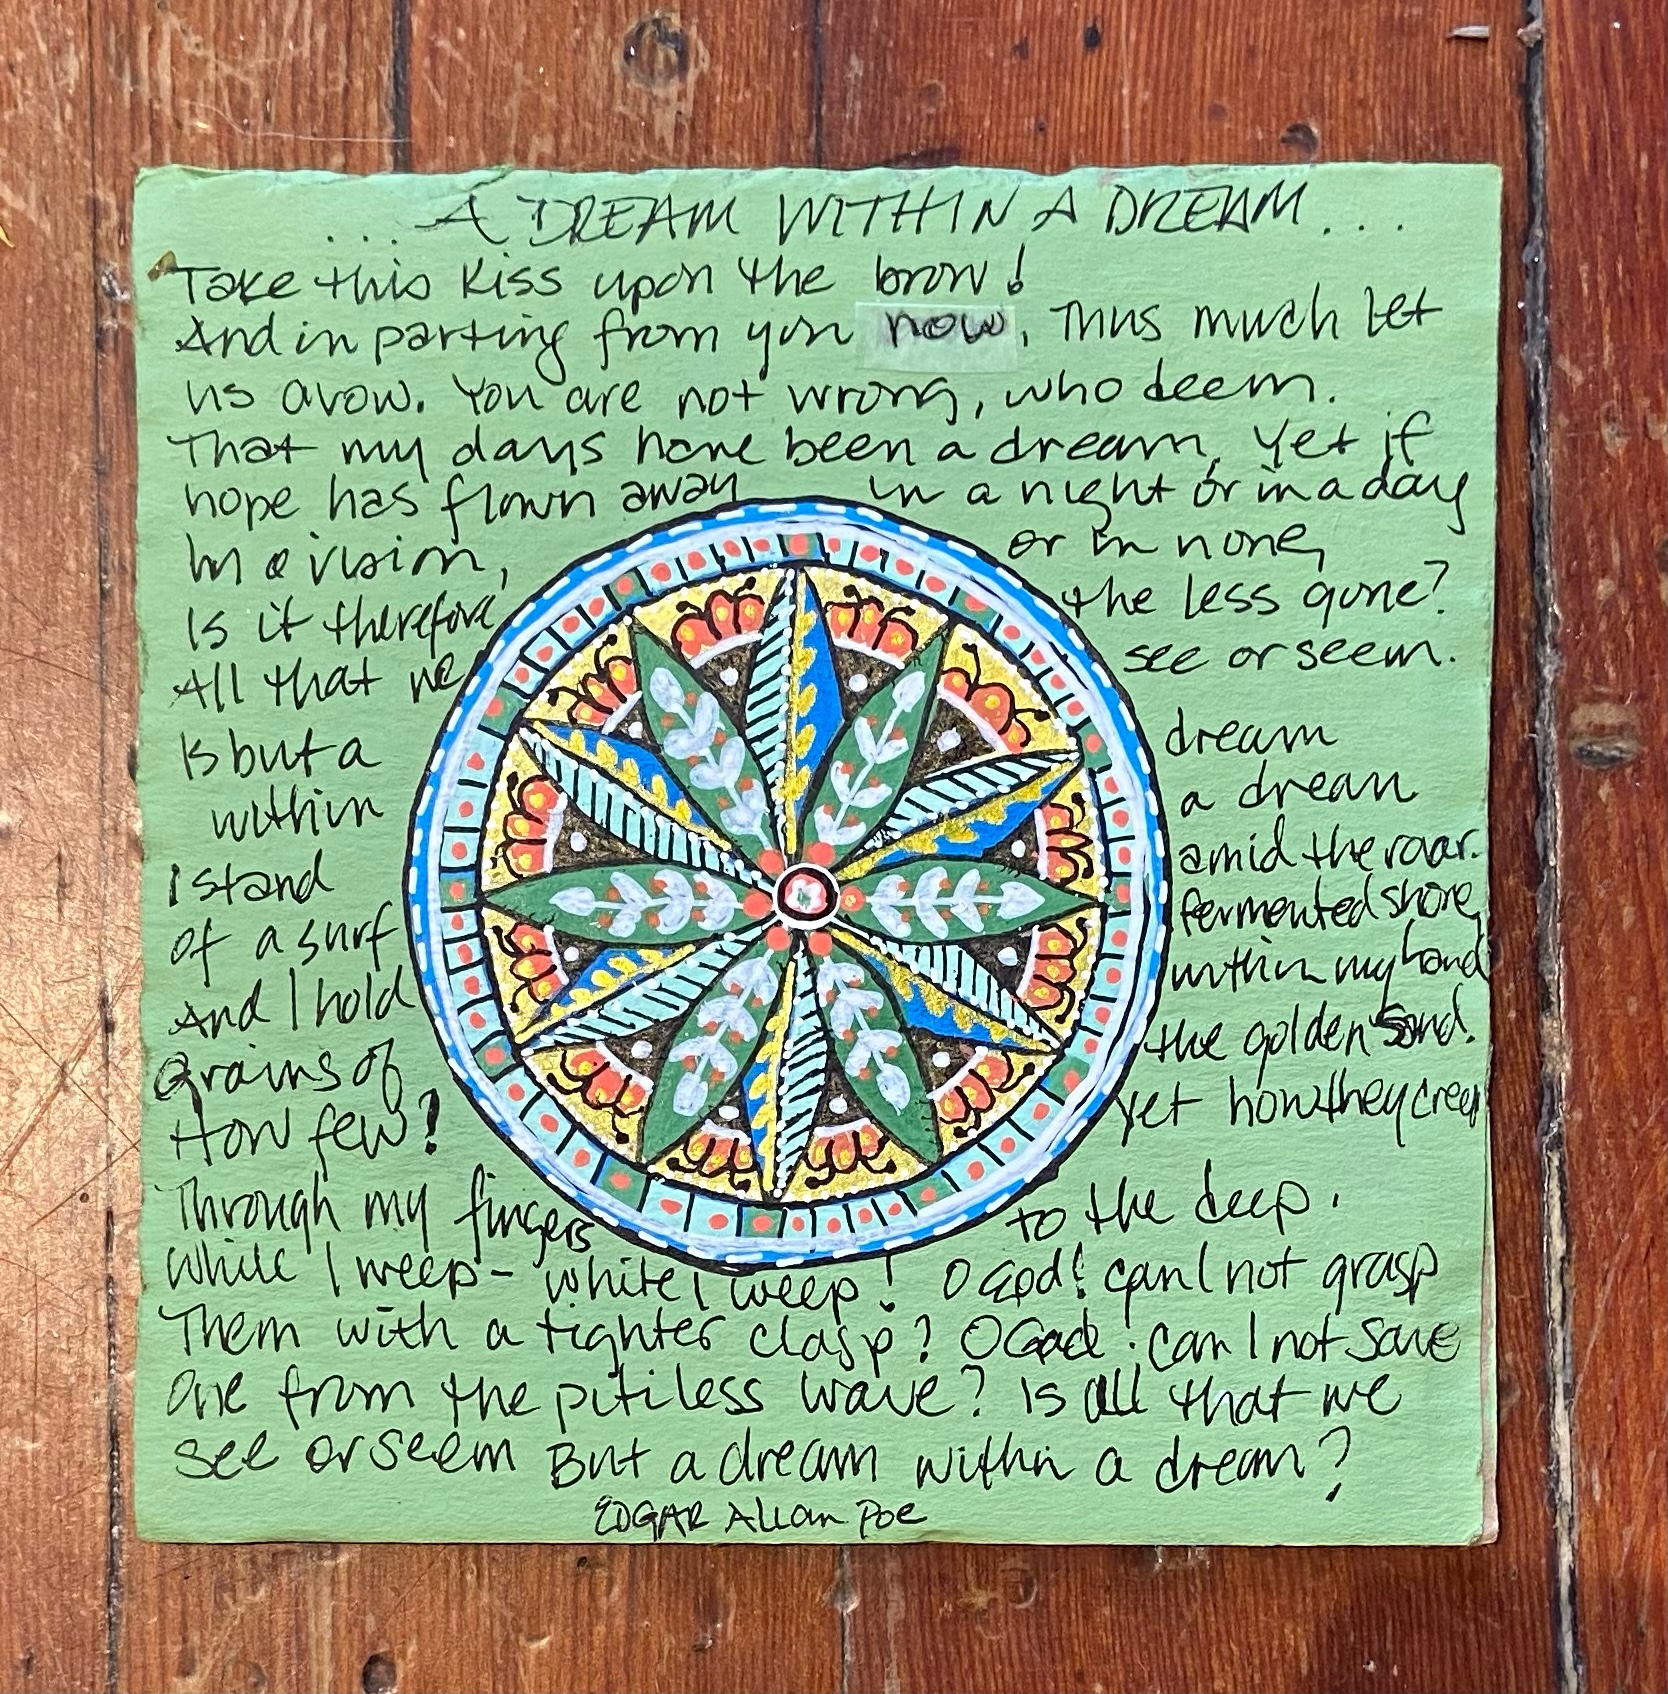 ...A DREAM WITHIN A DREAM...
Take this kiss upon the brow!
And in parting from you now, Thus much let
us avow. You are not wrong, who deem.
That my days have been a dream, Yet if
hope has flown away in a night or in a day
In a vision, or in none,
Is it therefore the less gone?
All that we see or seem.
Is but a dream
within a dream
I stand amid the roar.
of a surf fermented shore,
And I hold within my hand
Grains of the golden sand.
How few! yet how they creep
Through my fingers to the deep.
While I weep - while I weep! O God! can I not grasp
Them with a tighter clasp? O God! can I not save
One from the pitiless wave? Is all that we
see or seem But a dream within a dream?
EDGAR Allan Poe